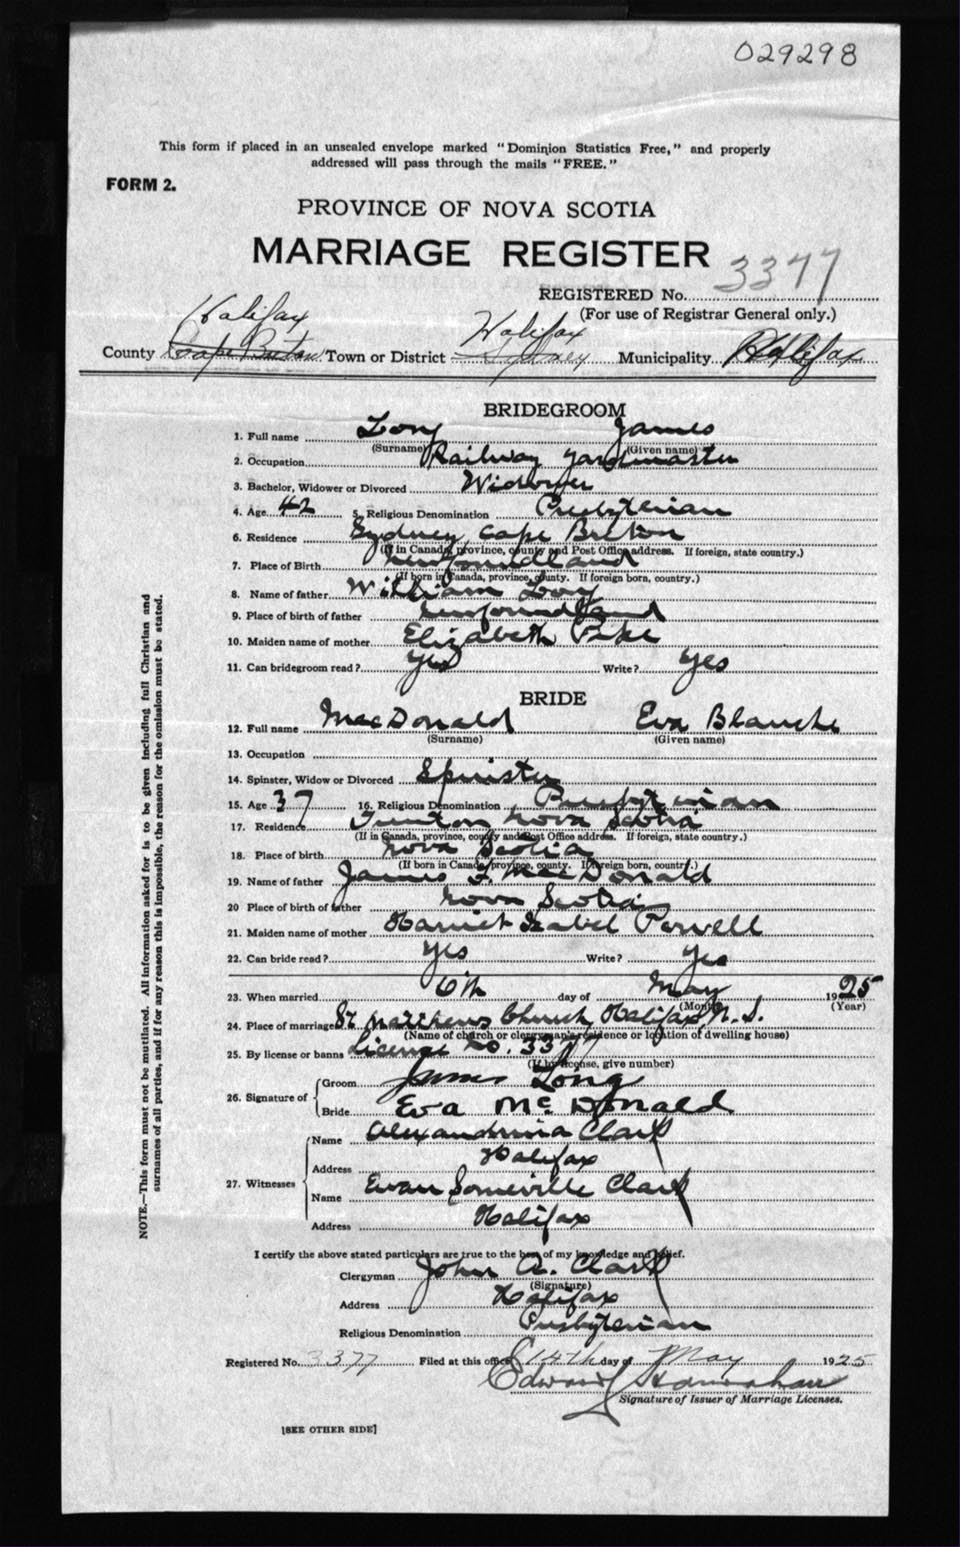 029298
This form if placed in an unsealed envelope marked "Dominion Statistics Free," and properly
addressed will pass through the mails "FREE."
FORM 2.
PROVINCE OF NOVA SCOTIA
MARRIAGE REGISTER
REGISTERED No. 3377
(For use of Registrar General only.)
Halifax Halifax
County Cape Breton Town or District Sydney Municipality Halifax
BRIDEGROOM
1. Full name Long James
(Surname) (Given name)
2. Occupation Railway Yardmaster
3. Bachelor, Widower or Divorced Widower
4. Age 42 5. Religious Denomination Presbyterian
6. Residence Sydney, Cape Breton
(If in Canada, province, county and Post Office address. If foreign, state country.)
7. Place of Birth Newfoundland
(If born in Canada, province, county. If foreign born, country.)
8. Name of father William Long
9. Place of birth of father Newfoundland
10. Maiden name of mother Elizabeth Pike
11. Can bridegroom read? Yes Write? Yes
BRIDE
12. Full name MacDonald Eva Blanche
(Surname) (Given name)
13. Occupation
14. Spinster, Widow or Divorced Spinster
15. Age 37 16. Religious Denomination Presbyterian
17. Residence Nova Scotia
(If in Canada, province, county and Post Office address. If foreign, state country.)
18. Place of birth Nova Scotia
(If born in Canada, province, county. If foreign born, country.)
19. Name of father James F. MacDonald
20 Place of birth of father Nova Scotia
21. Maiden name of mother Harriet Isabel Powell
22. Can bride read? Yes Write? Yes
23. When married 6th day of May 1925
(Month) (Year)
24. Place of marriage St Matthews Church, Halifax, N.S.
(Name of church or clergyman's residence or location of dwelling house)
25. By license or banns License No. 3377
(If by license, give number)
26. Signature of Groom James Long
Bride Eva McDonald
27. Witnesses Name Alexandrina Clark
Address Halifax
Name Ewan Somerville Clark
Address Halifax
I certify the above stated particulars are true to the best of my knowledge and belief.
Clergyman John A. Clark
(Signature)
Address Halifax
Religious Denomination Presbyterian
Registered No. 3377 Filed at this office 14th day of May 1925
Edward
Signature of Issuer of Marriage Licenses.
[SEE OTHER SIDE]
NOTE.—This form must not be mutilated. All information asked for is to be given including full Christian and
surnames of all parties, and if for any reason this is impossible, the reason for the omission must be stated.